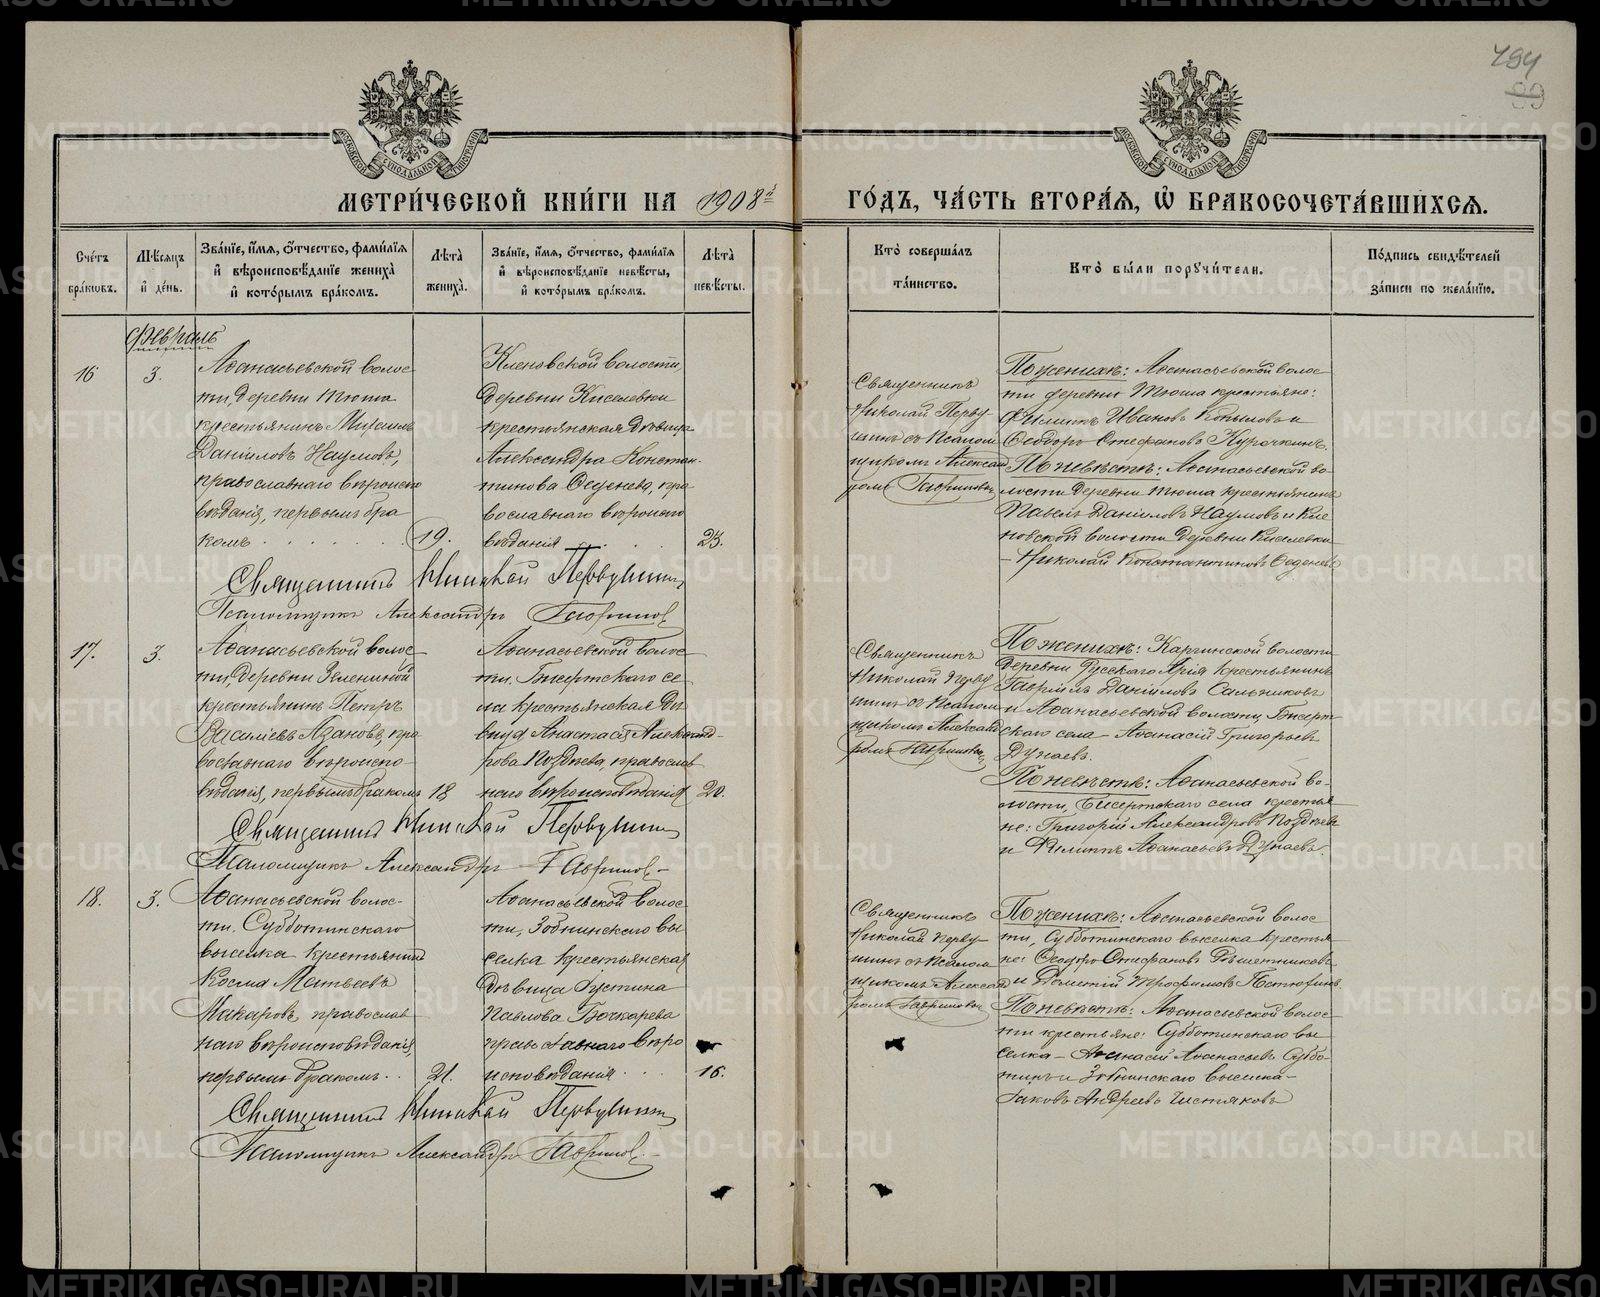 494
99
МЕТРИ́ЧЕСКОЙ КНИ́ГИ НА 1908й
ГО́ДЪ, ЧА́СТЬ ВТОРА́Я, Ѽ БРАКОСОЧЕТА́ВШИХСЯ.
Сче́тъ бра́ковъ.
Мѣ́сяцъ и҆ де́нь.
Зва́нїе, и҆́мя, ѻ҆́тчество, фами́лїя
и҆ вѣроисповѣ́данїе жениха̀
и҆ кото́рымъ бра́комъ.
Лѣ́та жениха̀.
Зва́нїе, и҆́мя, ѻ҆́тчество, фами́лїя
и҆ вѣроисповѣ́данїе невѣ́сты,
и҆ кото́рымъ бра́комъ.
Лѣ́та невѣ́сты.
Кто̀ соверша́лъ
та́инство.
Кто̀ бы́ли порꙋчи́тели.
По́дпись свидѣ́телей
за́писи по жела́нїю.
Февраль
16
3.
Аѳанасьевской волос
ти, деревни Тюша
крестьянинъ Михаилъ
Данииловъ Наумовъ,
православнаго вѣроиспо
вѣданія, первымъ бра
комъ
19.
Кленовской волости,
деревни Киселевки
крестьянская дѣвица
Александра Констан-
тинова Феденева, пра
вославнаго вѣроиспо
вѣданія
23.
Священникъ
Николай Перву
шинъ съ Псалом
щикомъ Александ
ромъ Гавриловы
По женихѣ: Аѳанасьевской волос
ти деревни Тюша крестьяне:
Филиппъ Ивановъ Копыловъ и
Ѳеодоръ Стефановъ Курочкинъ.
По невѣстѣ: Аѳанасьевской во
лости деревни Тюша крестьянинъ
Павелъ Данииловъ Наумовъ и Кле
новской волости деревни Киселевки
- Николай Константиновъ Феденевъ
Священникъ Николай Первушинъ
Псаломщикъ Александръ Гавриловъ
17.
3.
Аѳанасьевской волос
ти, деревни Зелениной
крестьянинъ Петръ
Василіевъ Азановъ, пра
вославнаго вѣроиспо-
вѣданія, первымъ бракомъ
18
Аѳанасьевской волос
ти, Бисертскаго се
ла крестьянская дѣ
вица Анастасія Александ-
рова Позднева, православ
наго вѣроисповѣданія
20.
Священникъ
Николай Перву
шинъ съ Псалом
щикомъ Александ
ромъ Гавриловы
По женихѣ: Каргинской волости
деревни Русскаго Арія крестьянинъ
Гавріилъ Данииловъ Сальниковъ
и Аѳанасьевской волости, Бисерт
скаго села - Аѳанасій Григорьевъ
Дунаевъ.
По невѣстѣ: Аѳанасьевской во-
лости, Бисертскаго села крестья
не: Григорій Александровъ Позднѣевъ
и Филиппъ Аѳанасьевъ Дунаевъ.
Священникъ Николай Первушинъ
Псаломщикъ Александръ Гавриловъ
18.
3.
Аѳанасьевской волос-
ти, Субботинскаго
выселка крестьянинъ
Косма Матвѣевъ
Макаровъ, православ
наго вѣроисповѣданія,
первымъ бракомъ
21.
Аѳанасьевской волос
ти, Зобнинскаго вы
селка крестьянская
дѣвица Густина
Павлова Бочкарева
православнаго вѣро
исповѣданія
16.
Священникъ
Николай Перву-
шинъ съ Псалом
щикомъ Александ
ромъ Гавриловы
По женихѣ: Аѳанасьевской волос
ти, Субботинскаго выселка крестья
не: Ѳеодоръ Стефановъ Рѣшетниковъ
и Дометій Трофимовъ
По невѣстѣ: Аѳанасьевской волос-
ти крестьяне: Субботинскаго вы
селка - Аѳанасій Аѳанасьевъ Суббо-
тинъ и Зобнинскаго выселка -
Іаковъ Андреевъ Чистяковъ
Священникъ Николай Первушинъ
Псаломщикъ Александръ Гавриловъ